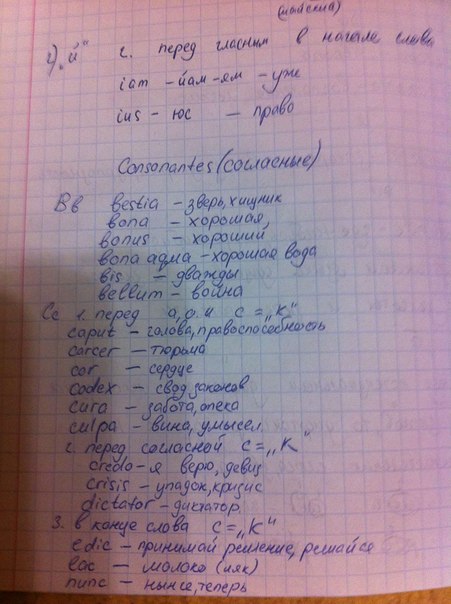 (майский)
2) „й" 2. перед гласным в начале слова
iam - йам-ям - уже
ius - юс - право
Consonantes (согласные)
Bв bestia - зверь, хищник
bona - хорошая,
bonus - хороший
bona aqua - хорошая вода
bis - дважды
bellum - война
Cc 1. перед a, o, u c = „к"
caput - голова, правоспособность
carcer - тюрьма
cor - сердце
codex - свод законов
cura - забота, опека
culpa - вина, умысел
2. перед согласной c = „К"
credo - я верю, девиз
crisis - упадок, кризис
dictator - диктатор
3. в конце слова c = „К"
edic - принимай решение, решайся
lac - молоко (ляк)
nunc - нынче, теперь